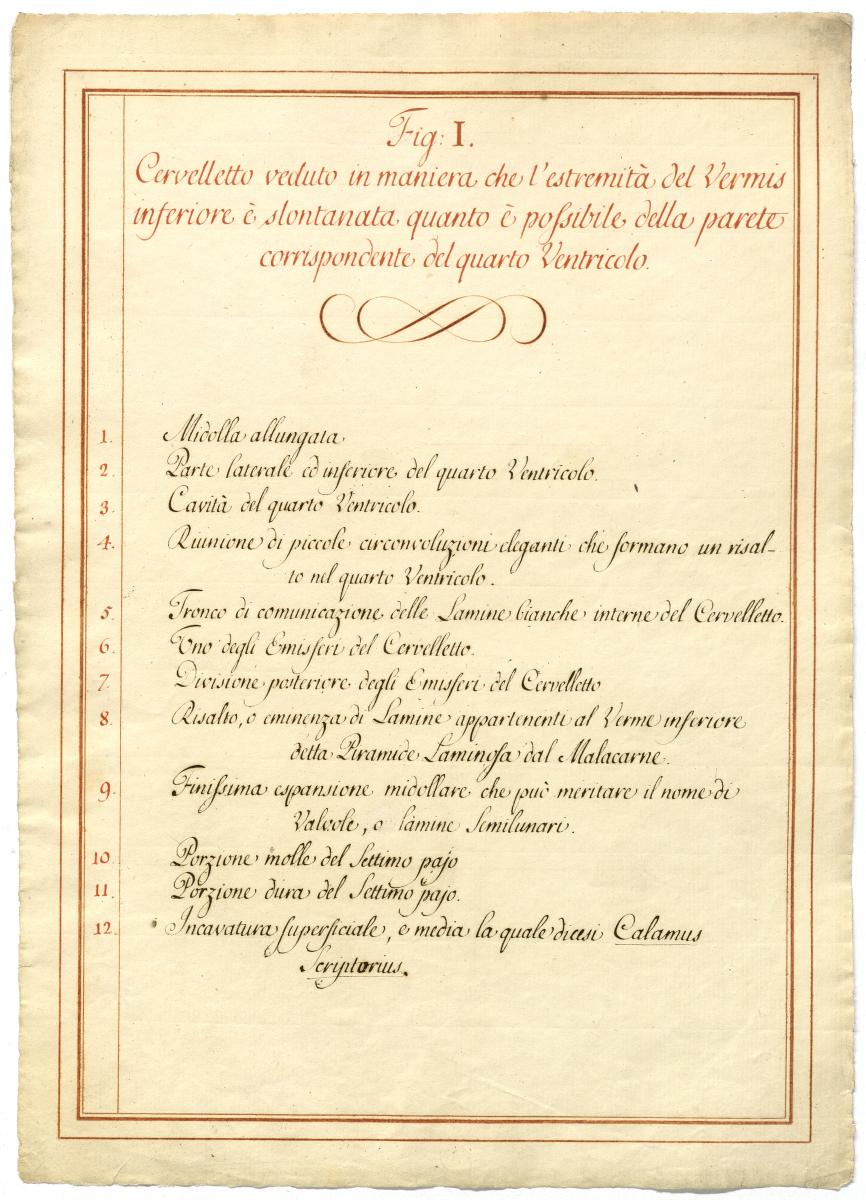 Fig: I.
Cervelletto veduto in maniera che l'estremità del Vermis
inferiore è slontanata quanto è possibile della parete
corrispondente del quarto Ventricolo.
1. Midolla allungata
2. Parte laterale ed inferiore del quarto Ventricolo.
3. Cavità del quarto Ventricolo.
4. Riunione di piccole circonvoluzioni eleganti che formano un risal-
to nel quarto Ventricolo.
5. Tronco di comunicazione delle Lamine bianche interne del Cervelletto.
6. Uno degli Emisferi del Cervelletto.
7. Divisione posteriore degli Emisferi del Cervelletto
8. Risalto, o eminenza di Lamine appartenenti al Verme inferiore
detta Piramide Laminosa dal Malacarne.
9. Finissima espansione midollare che può meritare il nome di
Valvole, o lamine Semilunari.
10. Porzione molle del Settimo pajo
11. Porzione dura del Settimo pajo.
12. Incavatura superficiale, e media la quale dicesi Calamus
Scriptorius.